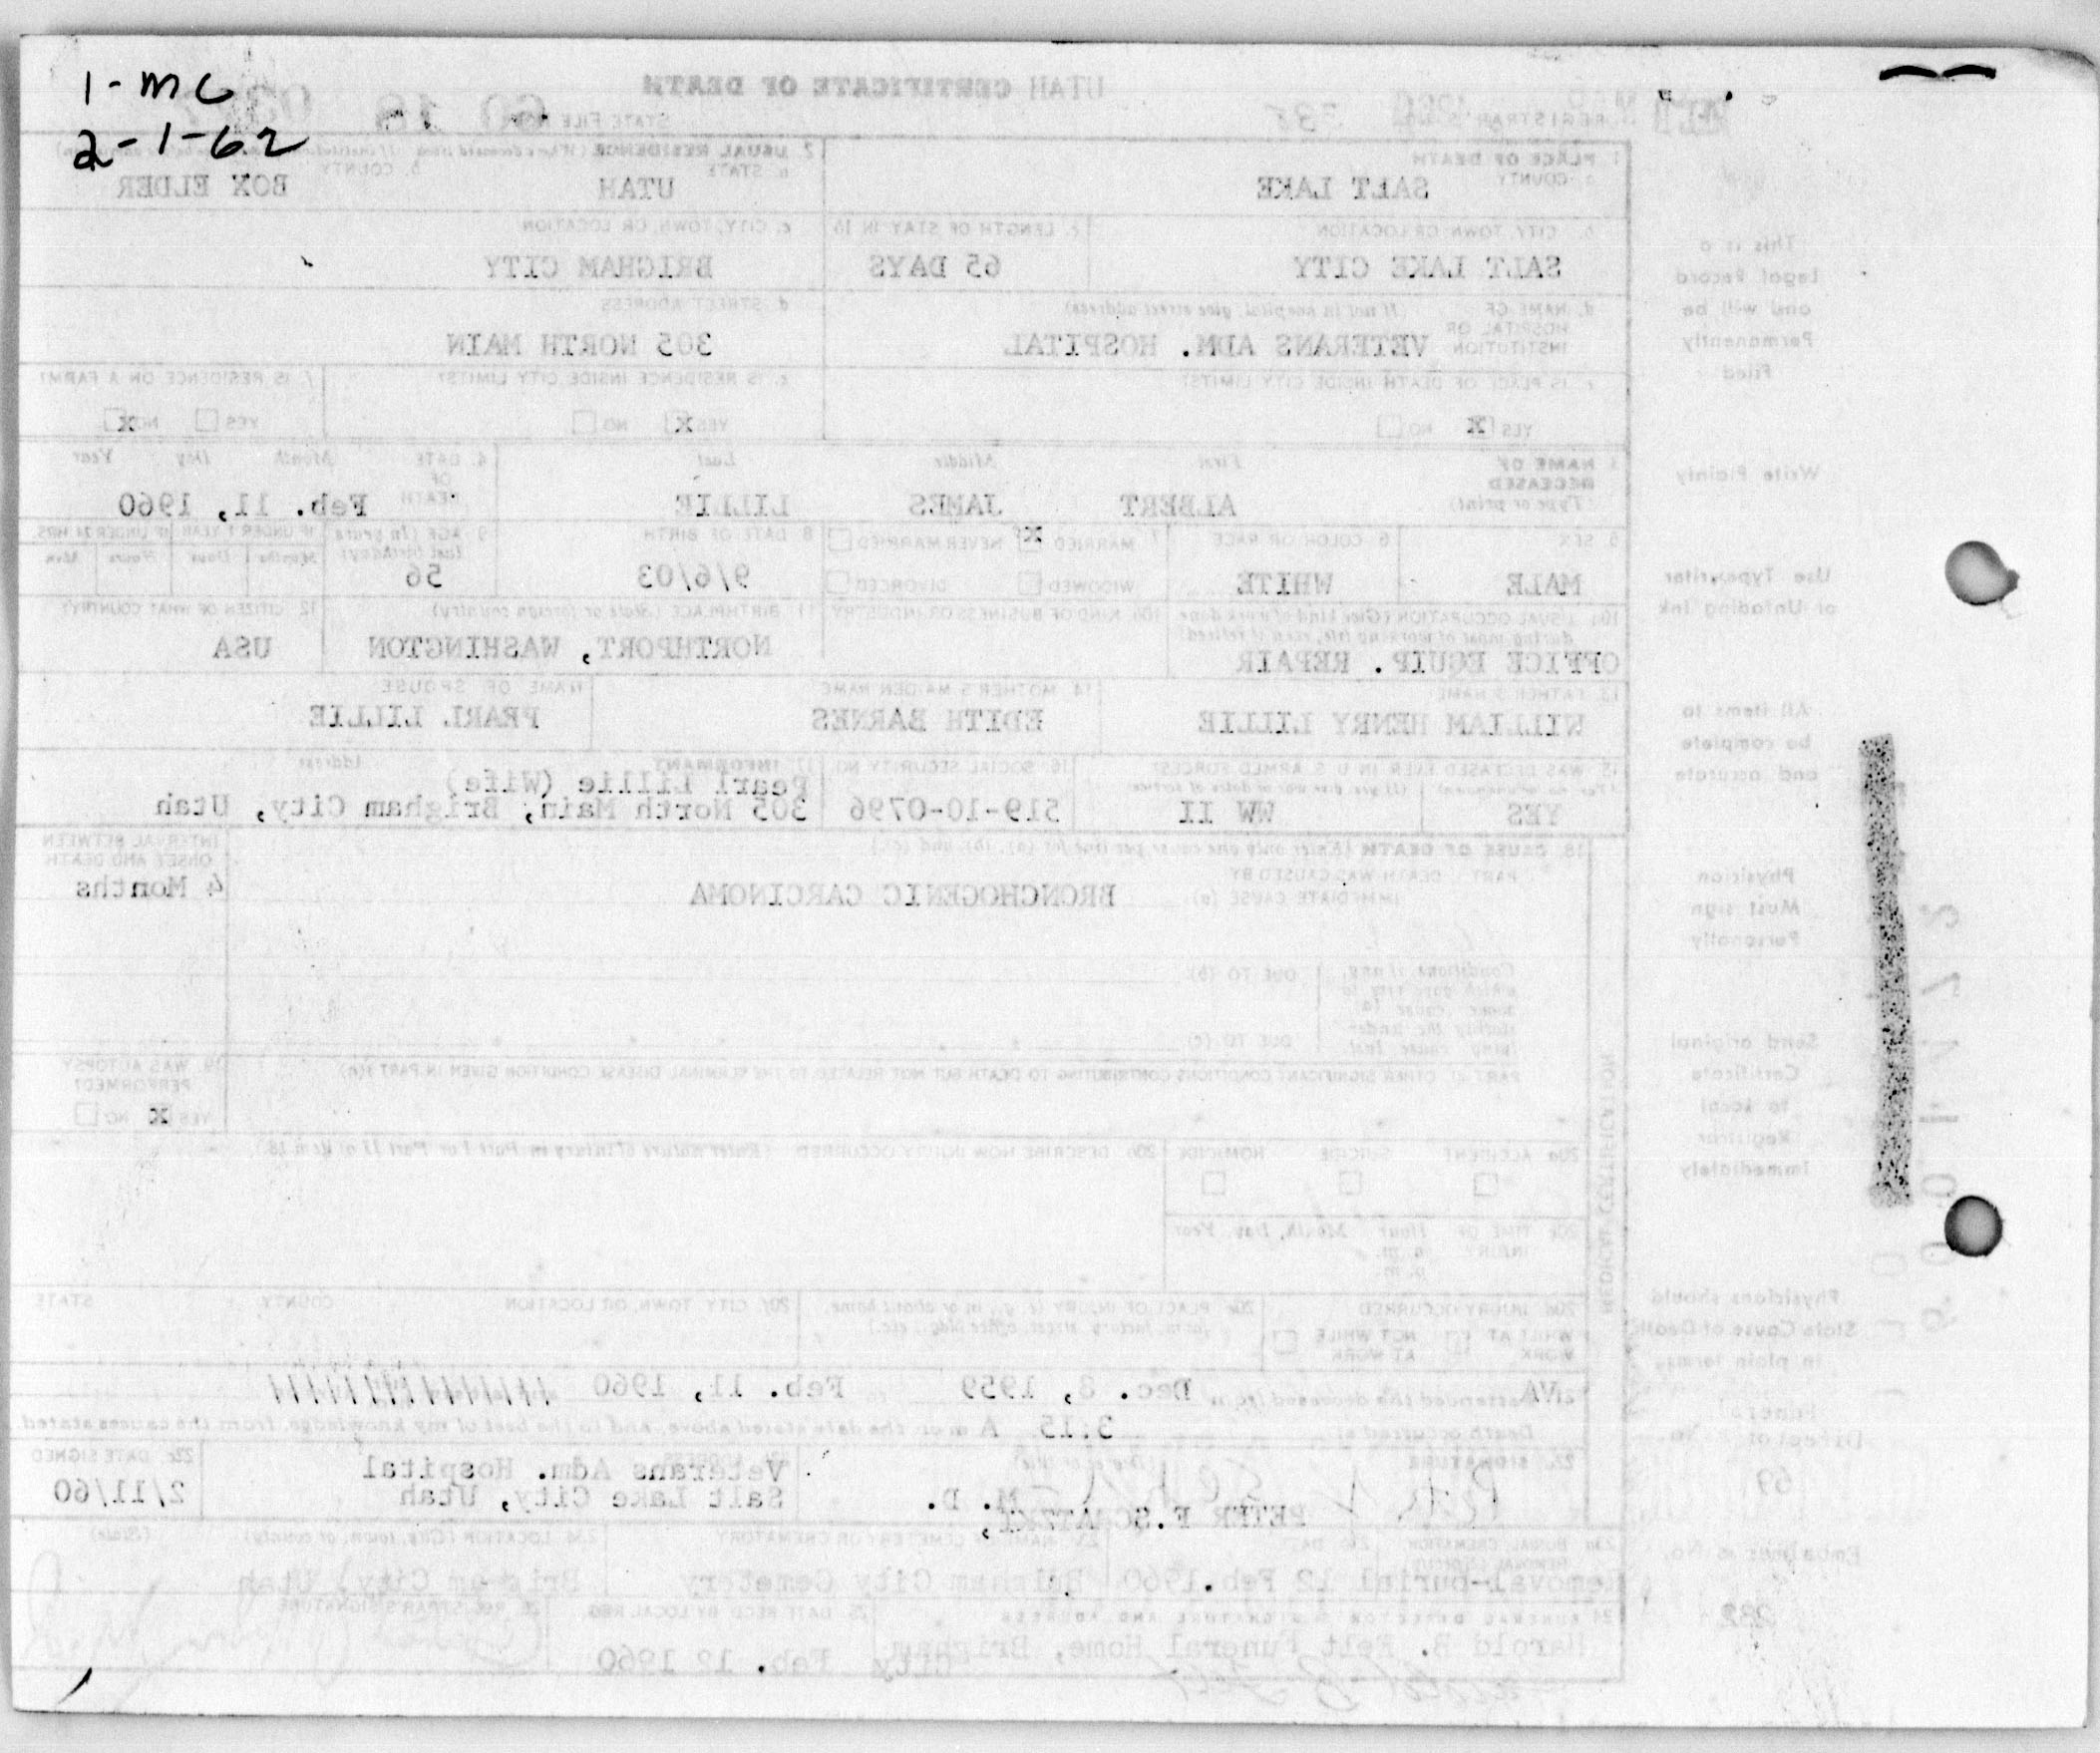 1-mc
2-1-62
UTAH CERTIFICATE OF DEATH
REGISTRAR'S NO. 335 STATE FILE NO. 60 18
1. PLACE OF DEATH
a. COUNTY SALT LAKE
2. USUAL RESIDENCE
a. STATE UTAH b. COUNTY BOX ELDER
b. CITY, TOWN OR LOCATION SALT LAKE CITY
c. LENGTH OF STAY IN 1b 65 DAYS
c. CITY, TOWN, OR LOCATION BRIGHAM CITY
d. NAME OF HOSPITAL OR INSTITUTION (If not in hospital, give street address) VETERANS ADM. HOSPITAL
d. STREET ADDRESS 305 NORTH MAIN
e. IS PLACE OF DEATH INSIDE CITY LIMITS? YES X NO
e. IS RESIDENCE INSIDE CITY LIMITS? YES X NO
f. IS RESIDENCE ON A FARM? YES NO X
3. NAME OF DECEASED (Type or print) First Middle Last
ALBERT JAMES LILLIE
4. DATE OF DEATH Month Day Year
Feb. 11, 1960
5. SEX MALE
6. COLOR OR RACE WHITE
7. MARRIED X NEVER MARRIED WIDOWED DIVORCED
8. DATE OF BIRTH 9/6/03
9. AGE (In years last birthday) 56
IF UNDER 1 YEAR Months Days IF UNDER 24 HRS. Hours Min.
10a. USUAL OCCUPATION (Give kind of work done during most of working life, even if retired)
OFFICE EQUIP. REPAIR
10b. KIND OF BUSINESS OR INDUSTRY
11. BIRTHPLACE (State or foreign country) NORTHPORT, WASHINGTON
12. CITIZEN OF WHAT COUNTRY? USA
13. FATHER'S NAME WILLIAM HENRY LILLIE
14. MOTHER'S MAIDEN NAME EDITH BARNES
NAME OF SPOUSE PEARL LILLIE
15. WAS DECEASED EVER IN U.S. ARMED FORCES? YES WW II
16. SOCIAL SECURITY NO. 519-10-0796
17. INFORMANT Address
Pearl Lillie (Wife)
305 North Main; Brigham City, Utah
18. CAUSE OF DEATH (Enter only one cause per line for (a), (b), and (c).)
PART I. DEATH WAS CAUSED BY
IMMEDIATE CAUSE (a) BRONCHOGENIC CARCINOMA
INTERVAL BETWEEN ONSET AND DEATH 4 Months
Conditions, if any, which gave rise to above cause (a) stating the underlying cause last.
DUE TO (b)
DUE TO (c)
PART II. OTHER SIGNIFICANT CONDITIONS CONTRIBUTING TO DEATH BUT NOT RELATED TO THE TERMINAL DISEASE CONDITION GIVEN IN PART I(a)
19. WAS AUTOPSY PERFORMED? YES X NO
20a. ACCIDENT SUICIDE HOMICIDE
20b. DESCRIBE HOW INJURY OCCURRED (Enter nature of injury in Part I or Part II of item 18.)
20c. TIME OF INJURY Hour a.m. p.m. Month, Day, Year
20d. INJURY OCCURRED WHILE AT WORK NOT WHILE AT WORK
20e. PLACE OF INJURY (e.g., in or about home, farm, factory, street, office bldg., etc.)
20f. CITY, TOWN, OR LOCATION COUNTY STATE
attended the deceased from Dec. 8, 1959 to Feb. 11, 1960
Death occurred at 3:15 A m on the date stated above, and to the best of my knowledge, from the causes stated
22a. SIGNATURE
PETER F. SCHATZKI, M. D.
22b. ADDRESS
Veterans Adm. Hospital
Salt Lake City, Utah
22c. DATE SIGNED 2/11/60
23a. BURIAL, CREMATION, REMOVAL (Specify) Removal-burial
23b. DATE 12 Feb. 1960
23c. NAME OF CEMETERY OR CREMATORY Brigham City Cemetery
23d. LOCATION (City, town, or county) (State) Brigham City, Utah
24. FUNERAL DIRECTOR'S SIGNATURE AND ADDRESS
Harold B. Felt Funeral Home, Brigham City
25. DATE RECD BY LOCAL REG. Feb. 12 1960
26. REGISTRAR'S SIGNATURE
MEDICAL CERTIFICATION
This is a
Legal Record
and will be
Permanently
Filed
Write Plainly
Use Typewriter
or Unfading Ink
All items to
be complete
and accurate
Physician
Must sign
Personally
Send original
Certificate
to local
Registrar
Immediately
Physicians should
State Cause of Death
in plain terms.
Funeral
Director's No.
69
Embalmer's No.